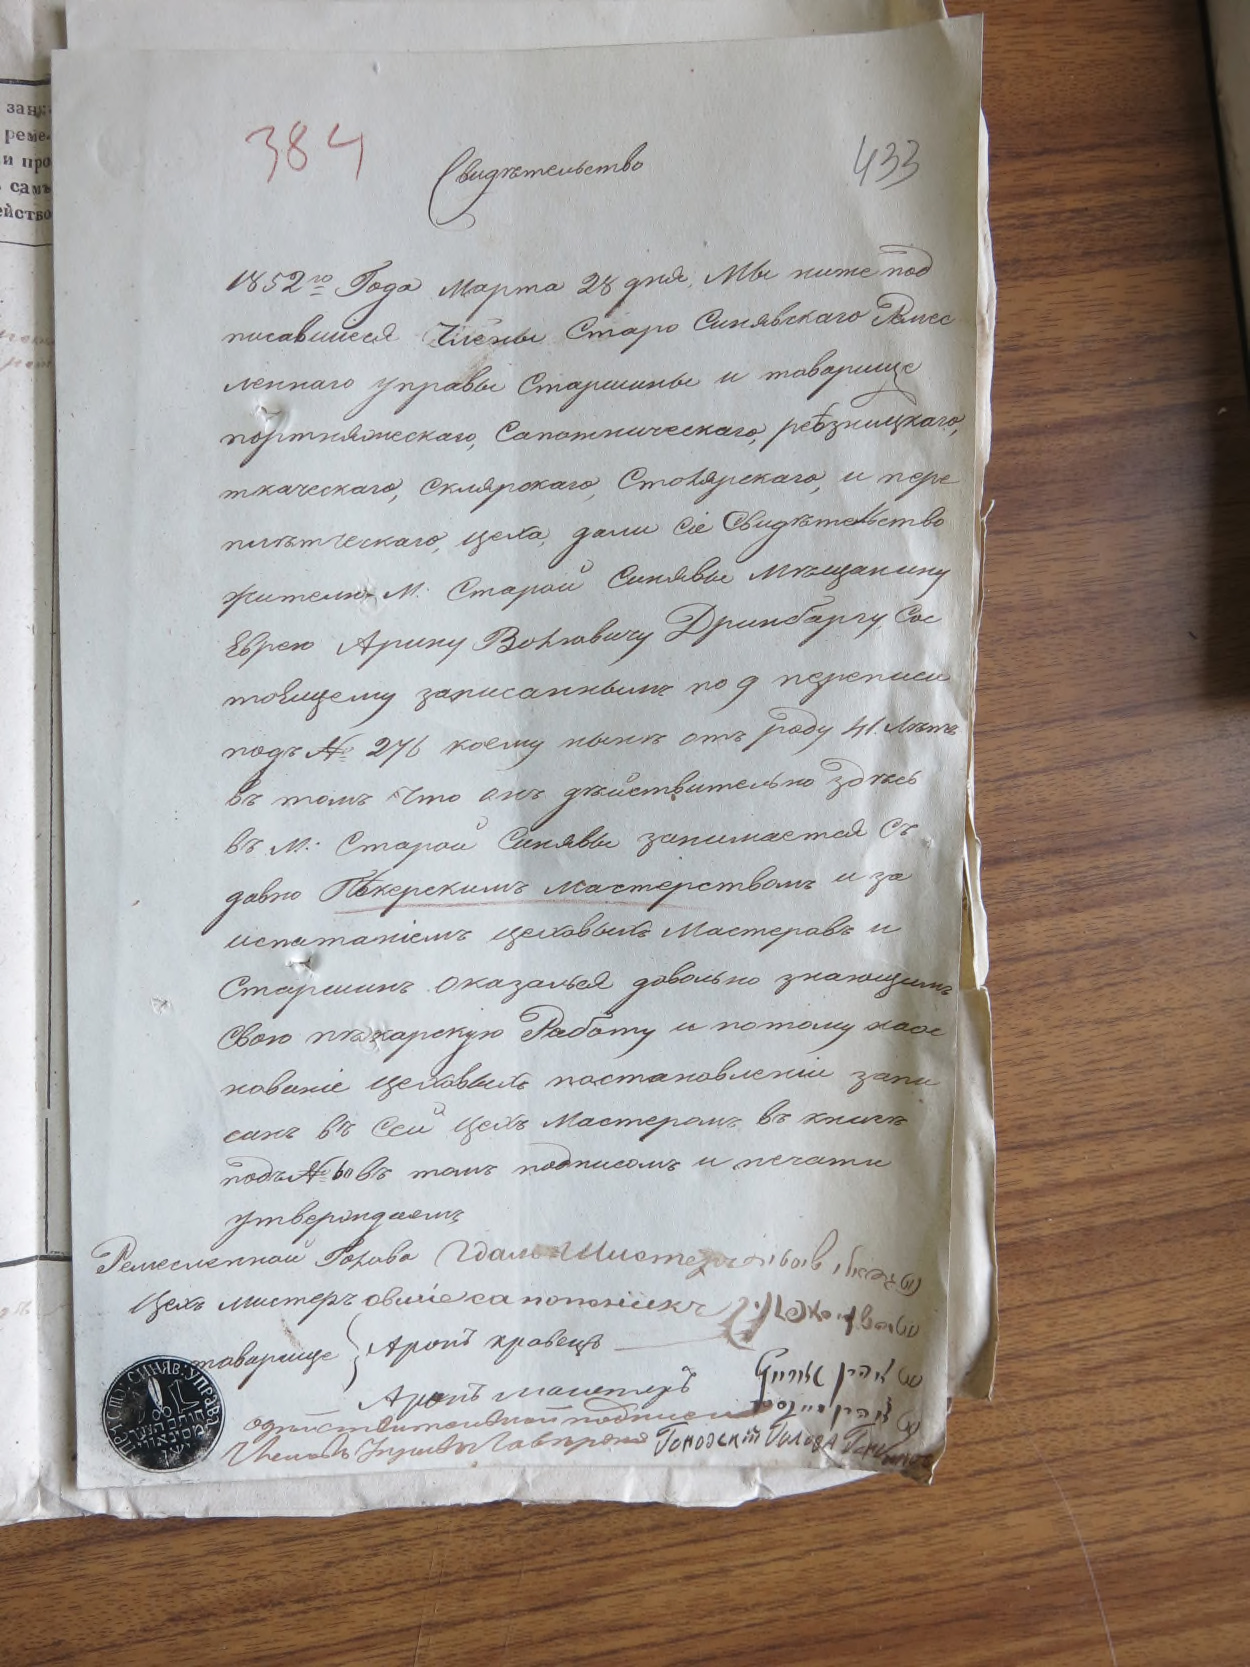 занк-
реме-
и про
самъ
ейство
384
433
Свидѣтельство
1852го Года Марта 28 дня, Мы ниже под
писавшиеся Члены Старо Синявскаго Ремес
леннаго управы Старшины и товарище
портняжескаго, Сапожническаго, рѣзницкаго,
ткаческаго, склярскаго, Столярскаго, и пере
плѣтческаго, цеха, дали сіе Свидѣтельство
жителю М. Старой Синявы Мѣщанину
Еврею Арину Волковичу Дринбаргу, Сос
тоящему записаннымъ по 9 переписи
подъ № 276 коему нынѣ отъ роду 41 Лѣтъ
въ томъ что онъ дѣйствительно здѣсь
въ М. Старой Синявы занимается съ
давно Пѣкерскимъ мастерствомъ и за
испытаніемъ цеховыхъ Мастеровъ и
Старшинъ оказалься довольно знающимъ
свою пѣкарскую Работу и потому на ос
нованіе цеховыхъ постановленіи запи
санъ въ сей цехъ Мастеромъ въ книгѣ
подъ № 60 въ томъ подписомъ и печати
утверждаемъ
Ремесленной Голова
Цехъ мистеръ
товарище Аронъ кравецъ
Аронъ
Городскій Голова
СИНЯВ: УПРАВА